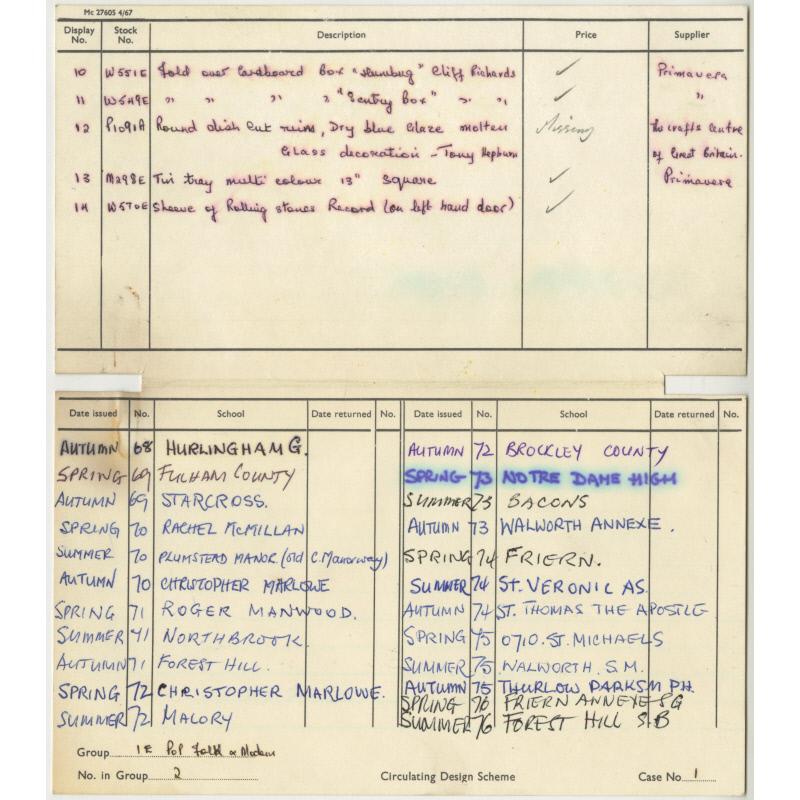 Mc 27605 4/67
Display No. Stock No. Description Price Supplier
10 W551E Fold over Cardboard Box "Humbug" Cliff Richards ✓ Primavera
11 W549E " " " " "Sentry Box" " " ✓ "
12 P1091A Round dish Cut ruins, Dry blue Glaze molten Missing The crafts Centre
Glass decoration - Tony Hepburn of Great Britain.
13 M298E Tin tray multi colour 13" Square ✓ Primavera
14 W570E Sleeve of Rolling stones Record (on left hand door) ✓
Date issued No. School Date returned No. Date issued No. School Date returned No.
AUTUMN 68 HURLINGHAM G.
SPRING 69 FULHAM COUNTY
AUTUMN 69 STARCROSS.
SPRING 70 RACHEL McMILLAN
SUMMER 70 PLUMSTEAD MANOR. (old C. Manorway)
AUTUMN 70 CHRISTOPHER MARLOWE
SPRING 71 ROGER MANWOOD.
SUMMER 71 NORTHBROOK.
AUTUMN 71 FOREST HILL.
SPRING 72 CHRISTOPHER MARLOWE.
SUMMER 72 MALORY
AUTUMN 72 BROCKLEY COUNTY
SPRING 73 NOTRE DAME HIGH
SUMMER 73 BACONS
AUTUMN 73 WALWORTH ANNEXE.
SPRING 74 FRIERN.
SUMMER 74 ST. VERONIC AS.
AUTUMN 74 ST. THOMAS THE APOSTLE
SPRING 75 0710. ST. MICHAELS
SUMMER 75 WALWORTH. S.M.
AUTUMN 75 THURLOW PARK SM PH.
SPRING 76 FRIERN ANNEXE SG
SUMMER 76 FOREST HILL S.B
Group 1E Pop Folk & Modern
No. in Group 2 Circulating Design Scheme Case No. 1